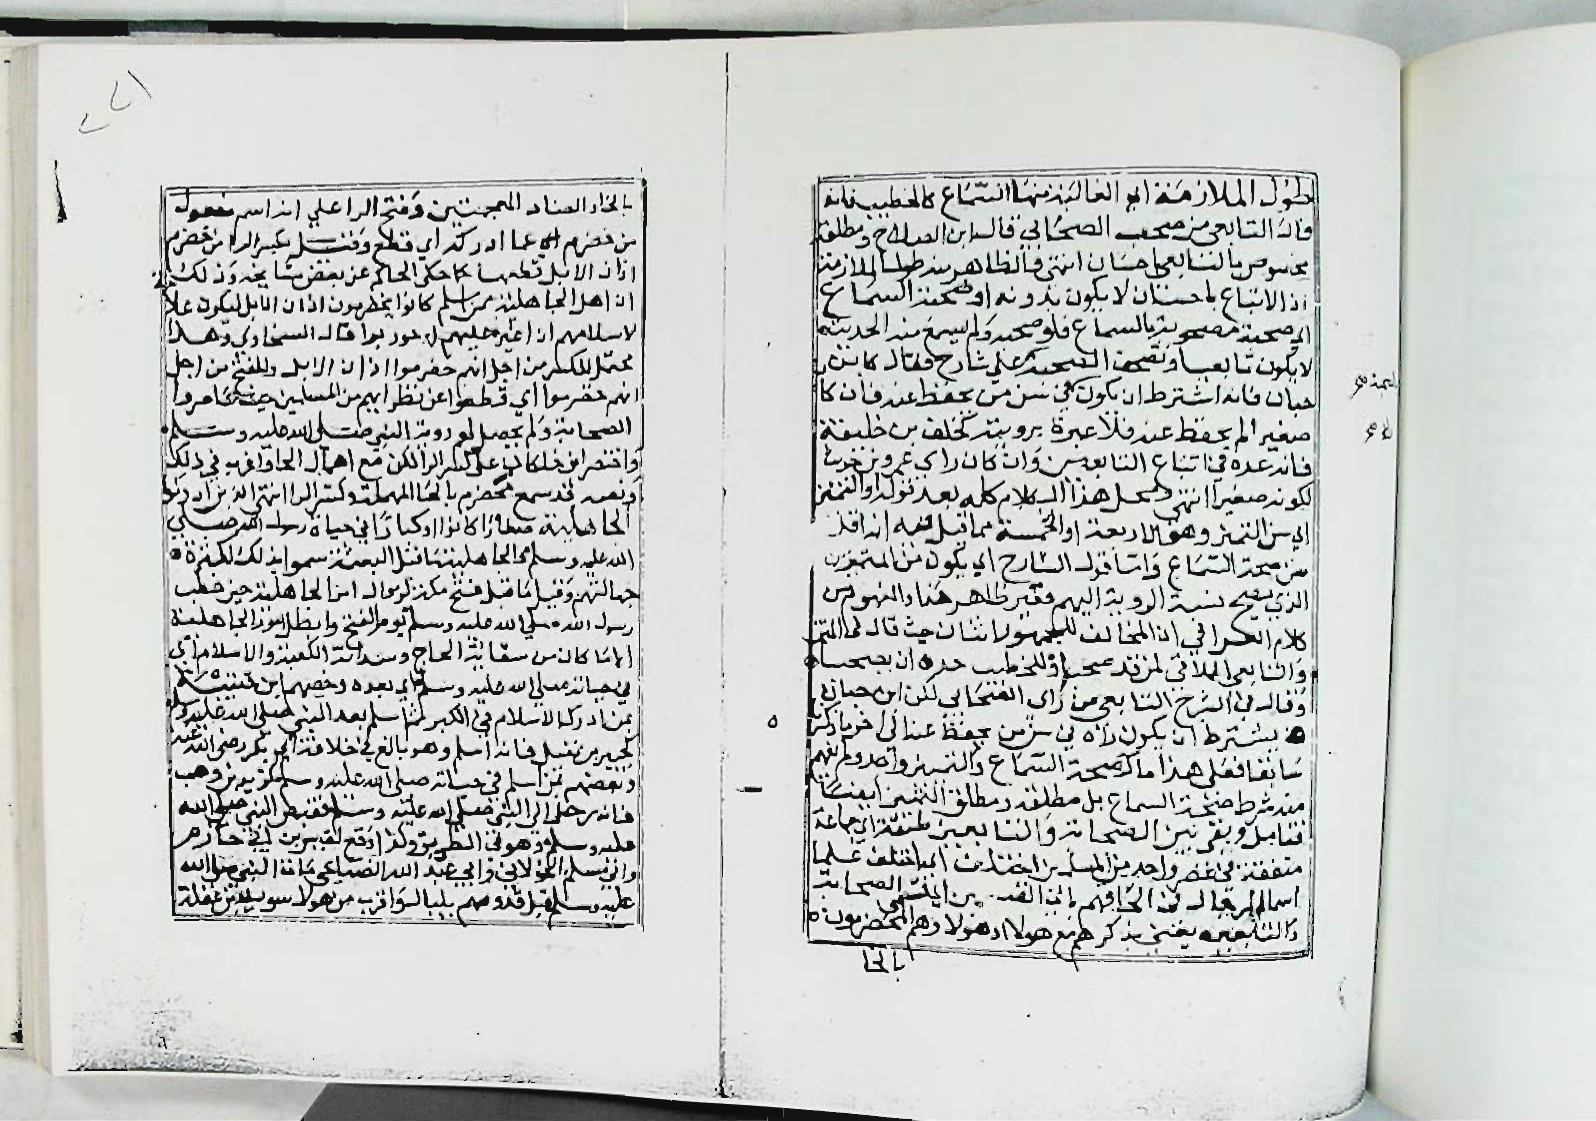 طول الملازمة اي الغالبة منها السماع كالخطيب فانه
قال التابعي من صحب الصحابي قال ابن الصلاح ومطلقه
مخصوص بالتابعي باحسان انتهى فالظاهر منه طول الملازمة
اذ الاتباع باحسان لا يكون بدونه او صحة السماع
اي صحبة مصحوبة بالسماع فلو صحبه ولم يسمع منه الحديث
لا يكون تابعيا على شارح فقال كابن
حبان فانه اشترط ان يكون في سن من يحفظ عنه فان كان
صغيرا لم يحفظ عنه فلا عبرة برويته كخلف بن خليفة
فانه عده في اتباع التابعين وان كان راى عمرو بن حريث
لكونه صغيرا انتهى هذا الكلام كله بعد قوله او التمييز
اي سن التمييز وهو الاربعة او الخمسة مما قبل فيه انه اقل
سن صحة السماع واما قول الشارح اي يكون من المتميزين
الذي يصح نسبة الروية اليهم فغير ظاهر هذا والمفهوم من
كلام العراقي ان المخالف للجمهور اثنان حيث قال في المتن
والتابعي الملاقي لمن قد صحبا وللخطيب حده ان يصحبا
وقال في الشرح التابعي من راى الصحابي لكن ابن حبان
يشترط ان يكون رآه في سن من يحفظ عنه الى اخر ما ذكر
سابقا فعلى هذا ماكر صحة السماع والتمييز واحد ولم يفهم
منه شرط صحة السماع بل مطلقه ومطلق التمييز ايضا
فتامل وبقي بين الصحابة والتابعين طبقة اي جماعة
متفقة في عصر واحد من المسلمين اختلف اي اختلف علما
اسما الرجال في الحاقهم باي القسمين اي الصحابة
والتابعين يعني بذكرهم مع هولا او هولا وهم المخضرمون
بالخا
بالخا والضاد المعجمتين وفتح الرا على انه اسم مفعول
من خضرم اي عما ادركه اي قطع وقيل بكسر الرا من خضرم
اذان الابل قطعها كما حكى الحاكم عن بعض مشايخه وذلك
ان اهل الجاهلية ممن اسلم كانوا يخضرمون اذان الابل ليكون علامة
لاسلامهم ان اغير عليهم او حوربوا قال السخاوي وهذا
محتمل للكسر من اجل انهم خضرموا اذان الابل وللفتح من اجل
انهم خضرموا اي قطعوا عن نظرائهم من المسلمين حيث عاصروا
الصحابة ولم يحصل لهم روية النبي صلى الله عليه وسلم
واقتصر ابن خلكان على كسر الرا لكن مع اهمال الحا واغرب في ذلك
ونصه قد سمع محضرم بالحا المهملة وكسر الرا انتهى الذين ادركوا
الجاهلية صغارا كانوا او كبارا في حياة رسول الله صلى
الله عليه وسلم والجاهلية ما قبل البعثة سموا بذلك لكثرة
جهالتهم وقيل ما قبل فتح مكة لزوال امر الجاهلية حين خطب
رسول الله صلى الله عليه وسلم يوم الفتح وابطل امور الجاهلية
الا ما كان من سقاية الحاج وسدانة الكعبة والاسلام اي
في حياته صلى الله عليه وسلم اي بعده وخصهما ابن قتيبة
بمن ادرك الاسلام في الكبر ثم اسلم بعد النبي صلى الله عليه وسلم
كجبير بن نفيل فانه اسلم وهو بالغ في خلافة ابي بكر رضي الله عنه
وبعضهم بمن اسلم في حياته صلى الله عليه وسلم كزيد بن وهب
فانه رحل الى النبي صلى الله عليه وسلم فقبض النبي صلى الله
عليه وسلم وهو في الطريق وكذا وقع لقيس بن ابي حازم
وابي مسلم الخولاني وابي عبد الله الصنابحي مات النبي صلى الله
عليه وسلم قبل قدومهم بليال واقرب من هولا سويد بن غفلة